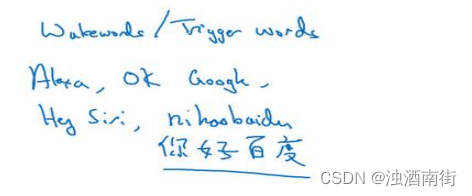 Wakewords/Trigger words
Alexa, OK Google,
Hey Siri, nihaobaidu
您好百度
CSDN @浊酒南街